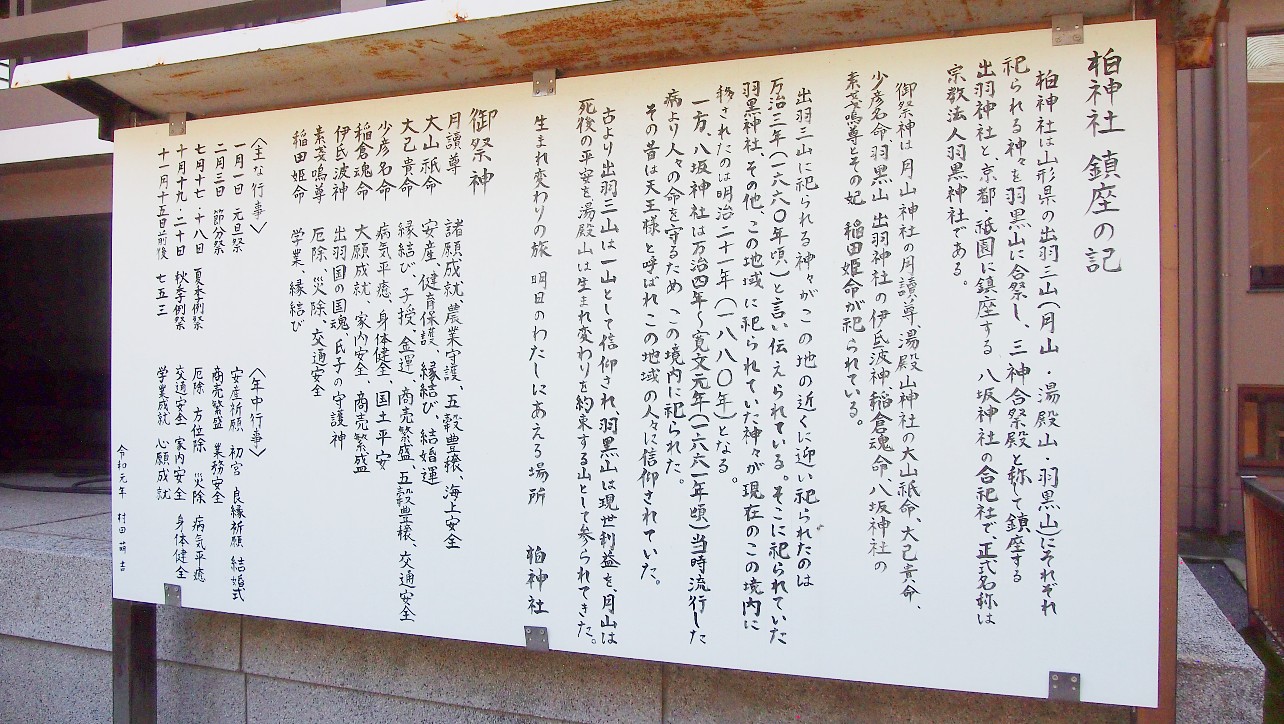 柏神社 鎮座の記
柏神社は山形県の出羽三山(月山・湯殿山・羽黒山)にそれぞれ
祀られる神々を羽黒山に合祭し、三神合祭殿と称して鎮座する
出羽神社と、京都・祇園に鎮座する 八坂神社の合祀社で、正式名称は
宗教法人羽黒神社である。
御祭神は月山神社の月讀尊、湯殿山神社の大山祇命、大己貴命、
少彦名命、羽黒山 出羽神社の伊氐波神、稲倉魂命、八坂神社の
素戔嗚尊とその妃 稲田姫命が祀られている。
出羽三山に祀られる神々がこの地の近くに迎い祀られたのは
万治三年(一六六〇年頃)と言い伝えられている。そこに祀られていた
羽黒神社、その他、この地域に祀られていた神々が現在のこの境内に
移されたのは明治二十一年(一八八〇年)となる。
一方、八坂神社は万治四年〜寛文元年(一六六一年頃)当時流行した
病より人々の命を守るため この境内に祀られた。
その昔は天王様と呼ばれこの地域の人々に信仰されていた。
古より出羽三山は一山として信仰され、羽黒山は現世利益を、月山は
死後の平安を湯殿山は生まれ変わりを約束する山として参られてきた。
生まれ変わりの旅 明日のわたしにあえる場所 柏神社
御祭神
月讀尊 諸願成就、農業守護、五穀豊穣、海上安全
大山祇命 安産、健育保護、縁結び、結始運
大己貴命 縁結び、子授、金運、商売繁盛、五穀豊穣、交通安全
少彦名命 病気平癒、身体健全、国土平安
稲倉魂命 大願成就、家内安全、商売繁盛
伊氐波神 出羽国の国魂、氏子の守護神
素戔嗚尊 厄除、災除、交通安全
稲田姫命 学業、縁結び
〈主な行事〉
一月一日 元旦祭
二月三日 節分祭
七月十七・十八日 夏季例祭
十月十九・二十日 秋季例祭
十一月十五日前後 七五三
〈年中行事〉
安産祈願 初宮 良縁祈願 結婚式
商売繁盛 業務安全
厄除 方位除 災除 病気平癒
交通安全 家内安全 身体健全
学業成就 心願成就
令和元年 村田萌吉